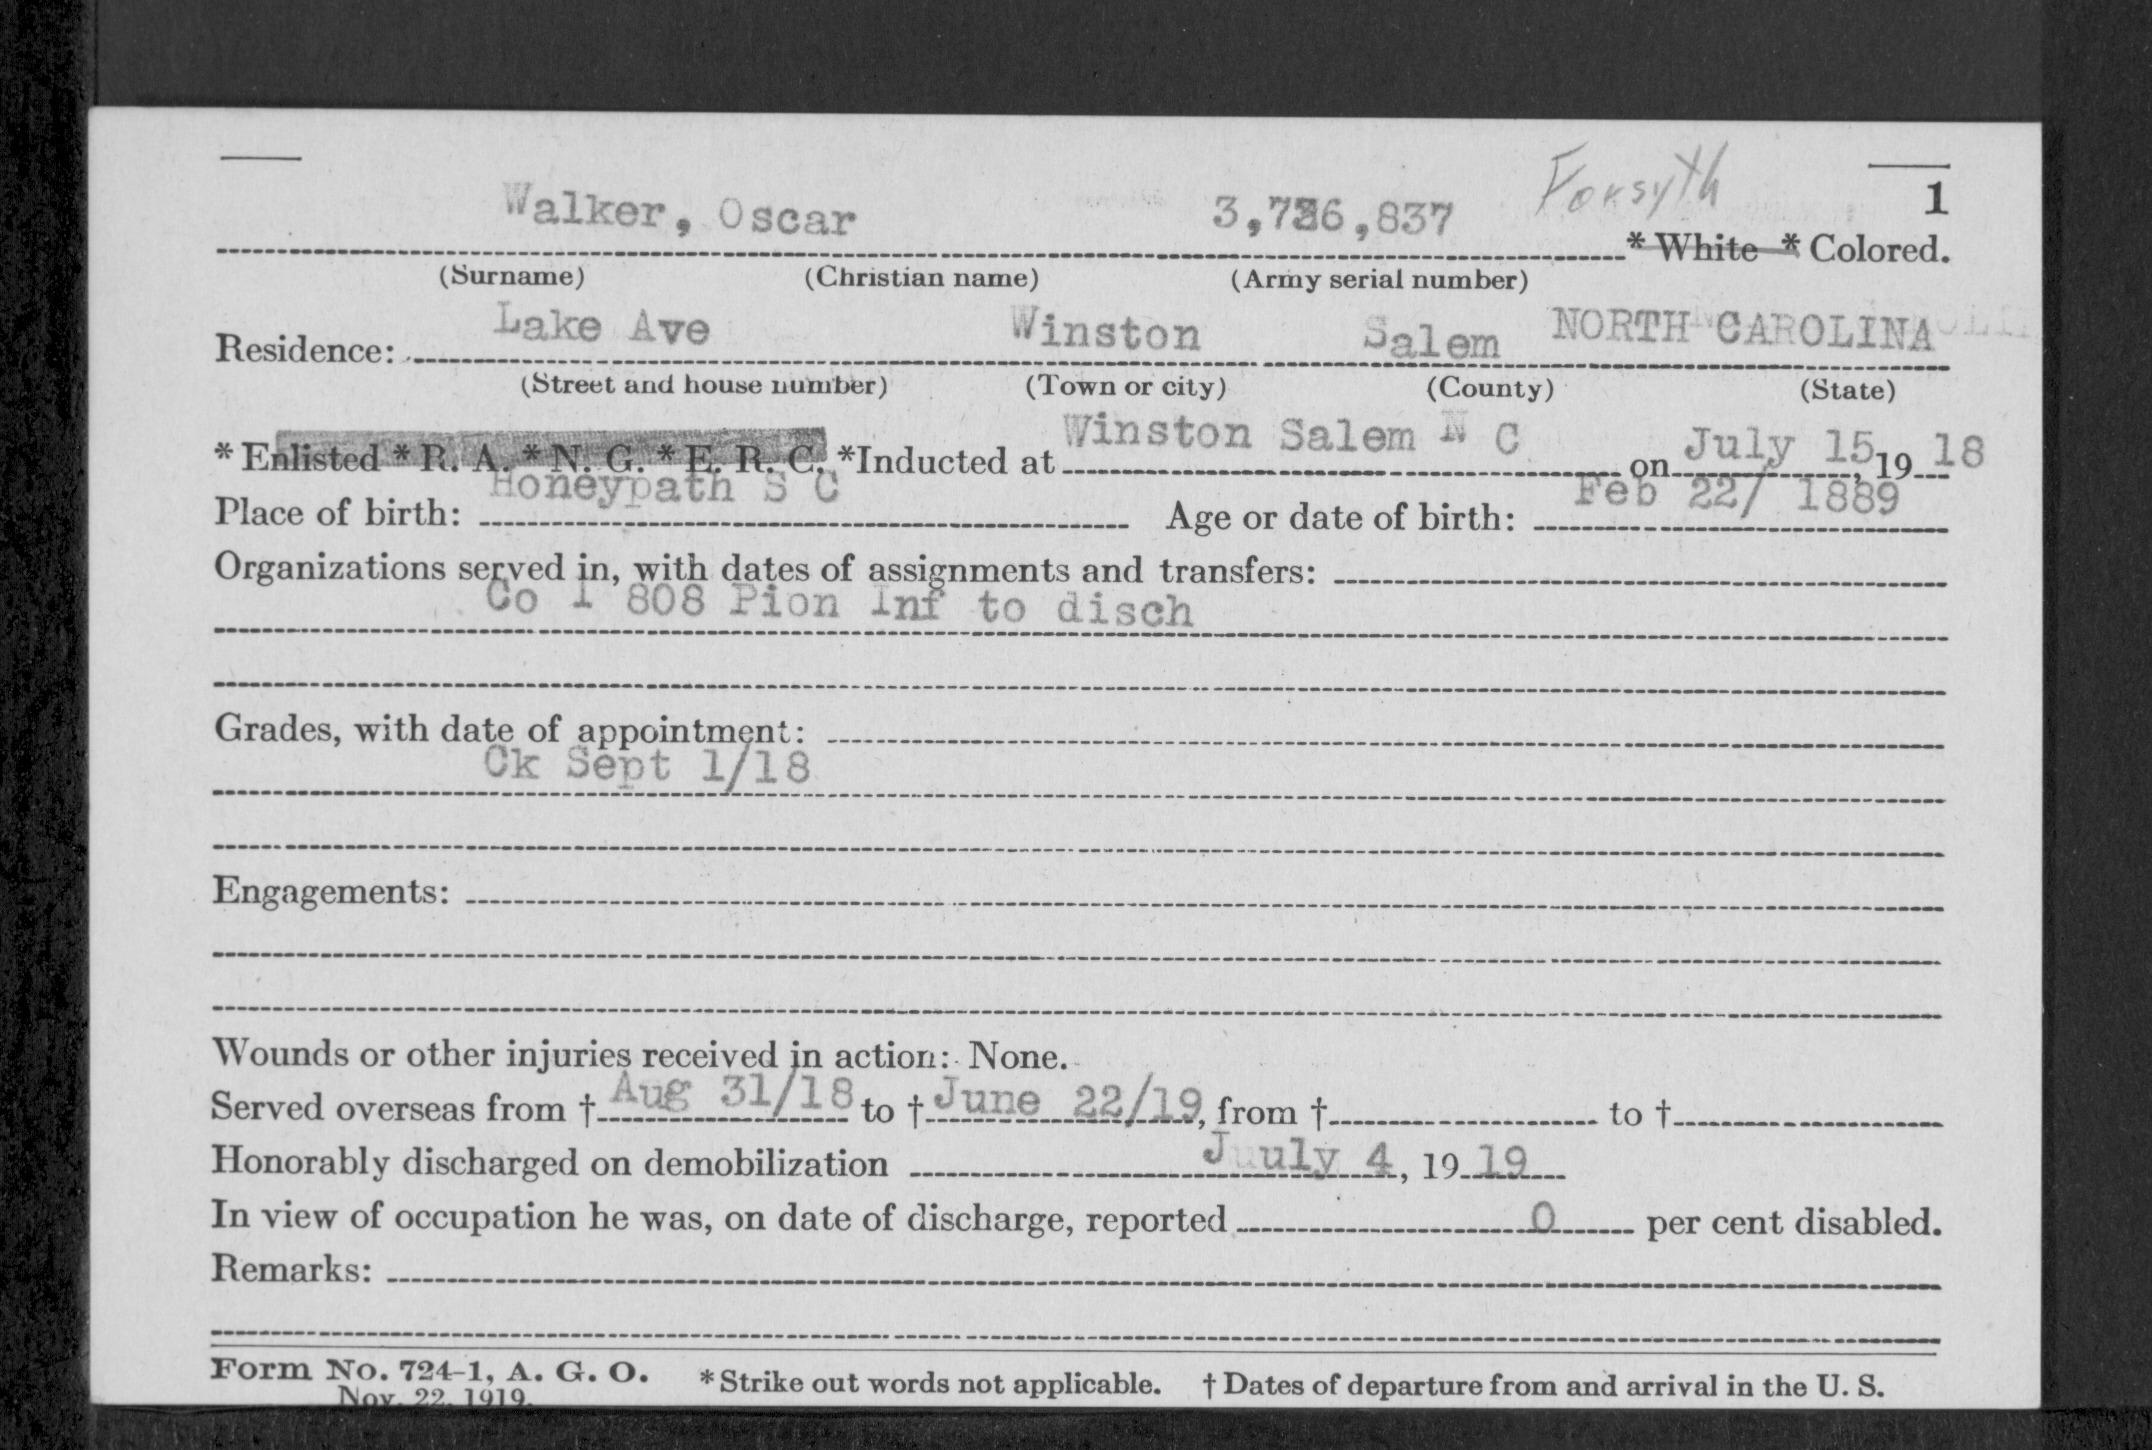 Forsyth
1
Walker, Oscar 3,736,837 * White * Colored.
(Surname) (Christian name) (Army serial number)
Residence: Lake Ave Winston Salem NORTH CAROLINA
(Street and house number) (Town or city) (County) (State)
* Enlisted * R. A. * N. G. * E. R. C. *Inducted at Winston Salem N C on July 15, 19 18
Place of birth: Honeypath S C Age or date of birth: Feb 22/ 1889
Organizations served in, with dates of assignments and transfers:
Co I 808 Pion Inf to disch
Grades, with date of appointment:
Ck Sept 1/18
Engagements:
Wounds or other injuries received in action: None.
Served overseas from † Aug 31/18 to † June 22/19, from † to †
Honorably discharged on demobilization Juuly 4, 19 19
In view of occupation he was, on date of discharge, reported 0 per cent disabled.
Remarks:
Form No. 724-1, A. G. O. * Strike out words not applicable. † Dates of departure from and arrival in the U. S.
Nov. 22, 1919.